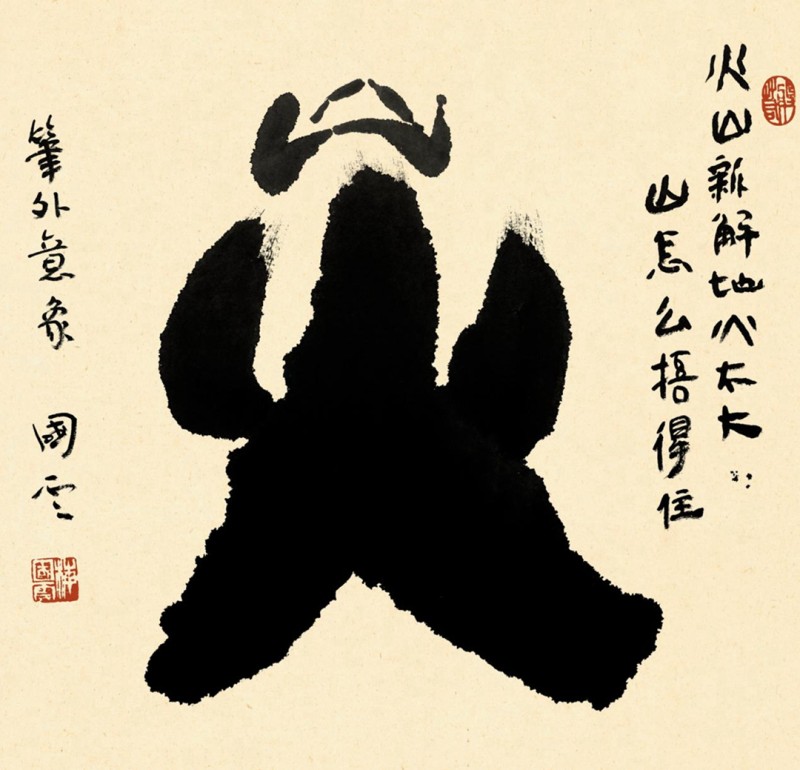 火山新解地火太大
山怎么捂得住
山
火
筆外意象
國雲
梅国雲